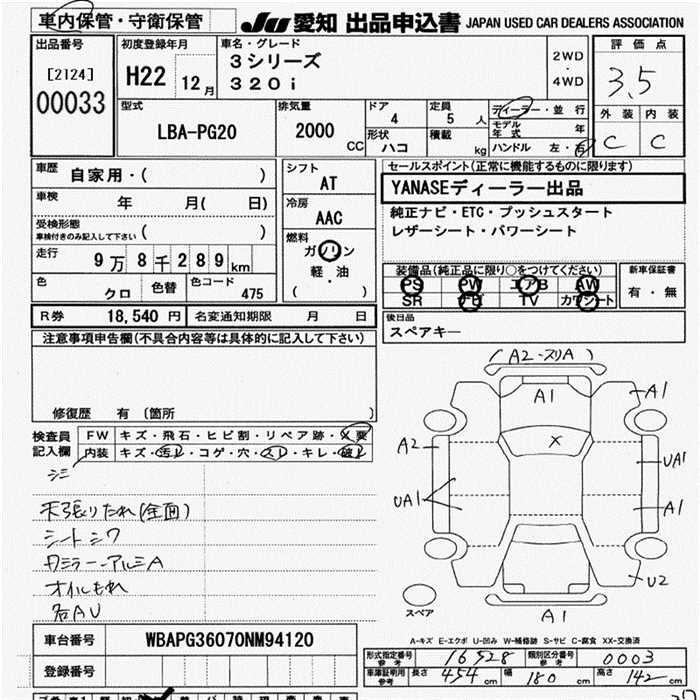 車内保管・守衛保管
JU 愛知 出品申込書 JAPAN USED CAR DEALERS ASSOCIATION
出品番号
[2124]
00033
初度登録年月
H22 12月
車名・グレード
3シリーズ
320i
2WD
・
4WD
評価点
3.5
外装 内装
C C
型式
LBA-PG20
排気量
2000 CC
ドア
4
定員
5 人
形状
ハコ
積載
kg
ディーラー・並行
モデル年式 年
ハンドル 左・右
車歴
自家用・( )
車検
年 月( 日)
受検形態
車検付きのみ記入して下さい ( )
走行
9万8千289km
色
クロ
色替
色コード
475
シフト
AT
冷房
AAC
燃料
ガソリン
軽・油
( )
セールスポイント(正常に機能するものに限ります)
YANASEディーラー出品
純正ナビ・ETC・プッシュスタート
レザーシート・パワーシート
装備品(純正品に限り○をつけてください)
PS PW エアB AW
SR ナビ TV カワシート
新車保証書
有・無
R券 18,540 円
名変通知期限 月 日
後日品
スペアキー
注意事項申告欄(不具合内容等は具体的に記入して下さい)
修復歴 有 〔箇所 〕
検査員
記入欄
FW キズ・飛石・ヒビ割・リペア跡・X要
内装 キズ・汚れ・コゲ・穴・スレ・キレ・破れ
シミ
天張りたれ(全面)
シートシワ
内ミラーアルミA
オイルもれ
各AU
(A2-スリA)
A1
A1
X
A2
UA1
UA1
A1
U2
スペア
A1
A-キズ E-エクボ U-凹み W-補修跡 S-サビ C-腐食 XX-交換済
車台番号
WBAPG36070NM94120
登録番号
形式指定番号
参考
16528
類別区分番号
参考
0003
車庫証明用
参考
長さ 454 cm 幅 180 cm 高さ 142 cm